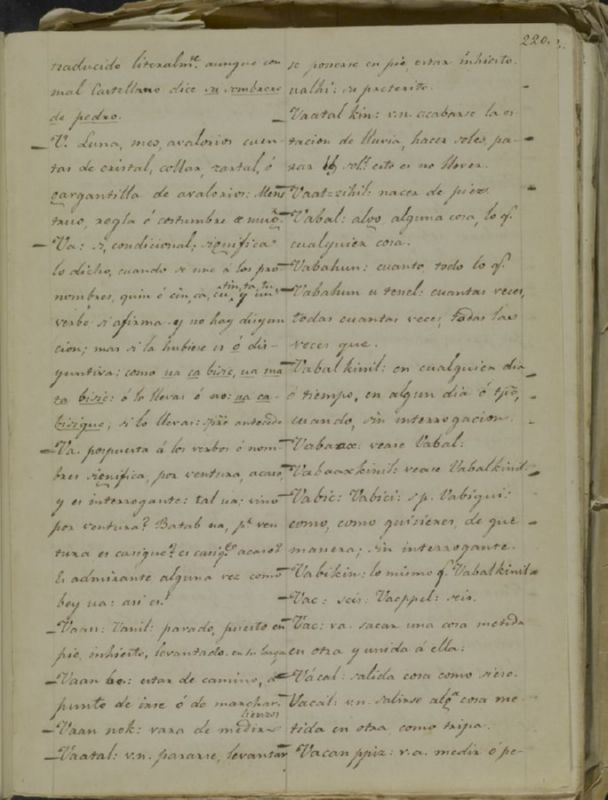 220.
traducido literalmte. aunque con
mal Castellano dice su sombrero
de pedro.
V. Luna, mes, avalorios cuen-
tas de cristal, collar, sartal, ó
gargantilla de avalorios: Mens
truo, regla ó costumbre de mug.
Va: si, condicional; significa
lo dicho, cuando se une á los pro
nombres, quin ó cin, ca, cu, y
tin, ta, tu
verbo si afirma y no hay disyun
cion; mas si la hubiere es ó dis-
yuntiva: como ua ca bisic, ua ma
ta bisic: ó lo llevas ó no: ua ca-
bisique, si lo llevas: antecede
Va. pospuesta á los verbos ó nom-
bres significa, por ventura, acaso,
y es interrogante: tal ua; vino
por ventura? Batab ua, pr. ven
tura es casique? es casiqe. acaso?
Es admirante alguna vez como
bey ua: asi es!
Vaan: Vanil: parado, puesto en
pie, inhiesto, levantado. en su lugar
Vaan be: estar de camino, á
punto de irse ó de marchar.
Vaan nok: vara de medir
lienzos
Vaatal: v.n. pararse, levantar
se ponerse en pie, estar inhiesto.
ualhi: su preterito.
Vaatal kin: v.n. acabarse la es
tacion de lluvia, hacer soles, pa-
sar sols. esto es no llover.
Vaat-zihil: nacer de piez.
Vabal: algo alguna cosa, lo q.
cualquier cosa.
Vabahun: cuanto, todo lo q.
Vabahun u tenel: cuantas veces,
todas cuantas veces, todas las
veces que.
Vabal kinil: en cualquier dia
ó tiempo, en algun dia ó tpo,
cuando, sin interrogacion.
Vabaax: vease Vabal:
Vabaaxkinil: vease Vabalkinil
Vabic: Vabici: s p. Vabiqui:
como, como quisieres, de que
manera; sin interrogante.
Vabikin: lo mismo q. Vabalkinil
Vac: seis. Vacppel: seis.
Vac: va. sacar una cosa metida
en otra y unida á ella:
Vácal: salida cosa como sieso.
Vacal: v.n. salirse alga. cosa me-
tida en otra como tripa.
Vacan ppiz: v.a. medir ó pe-